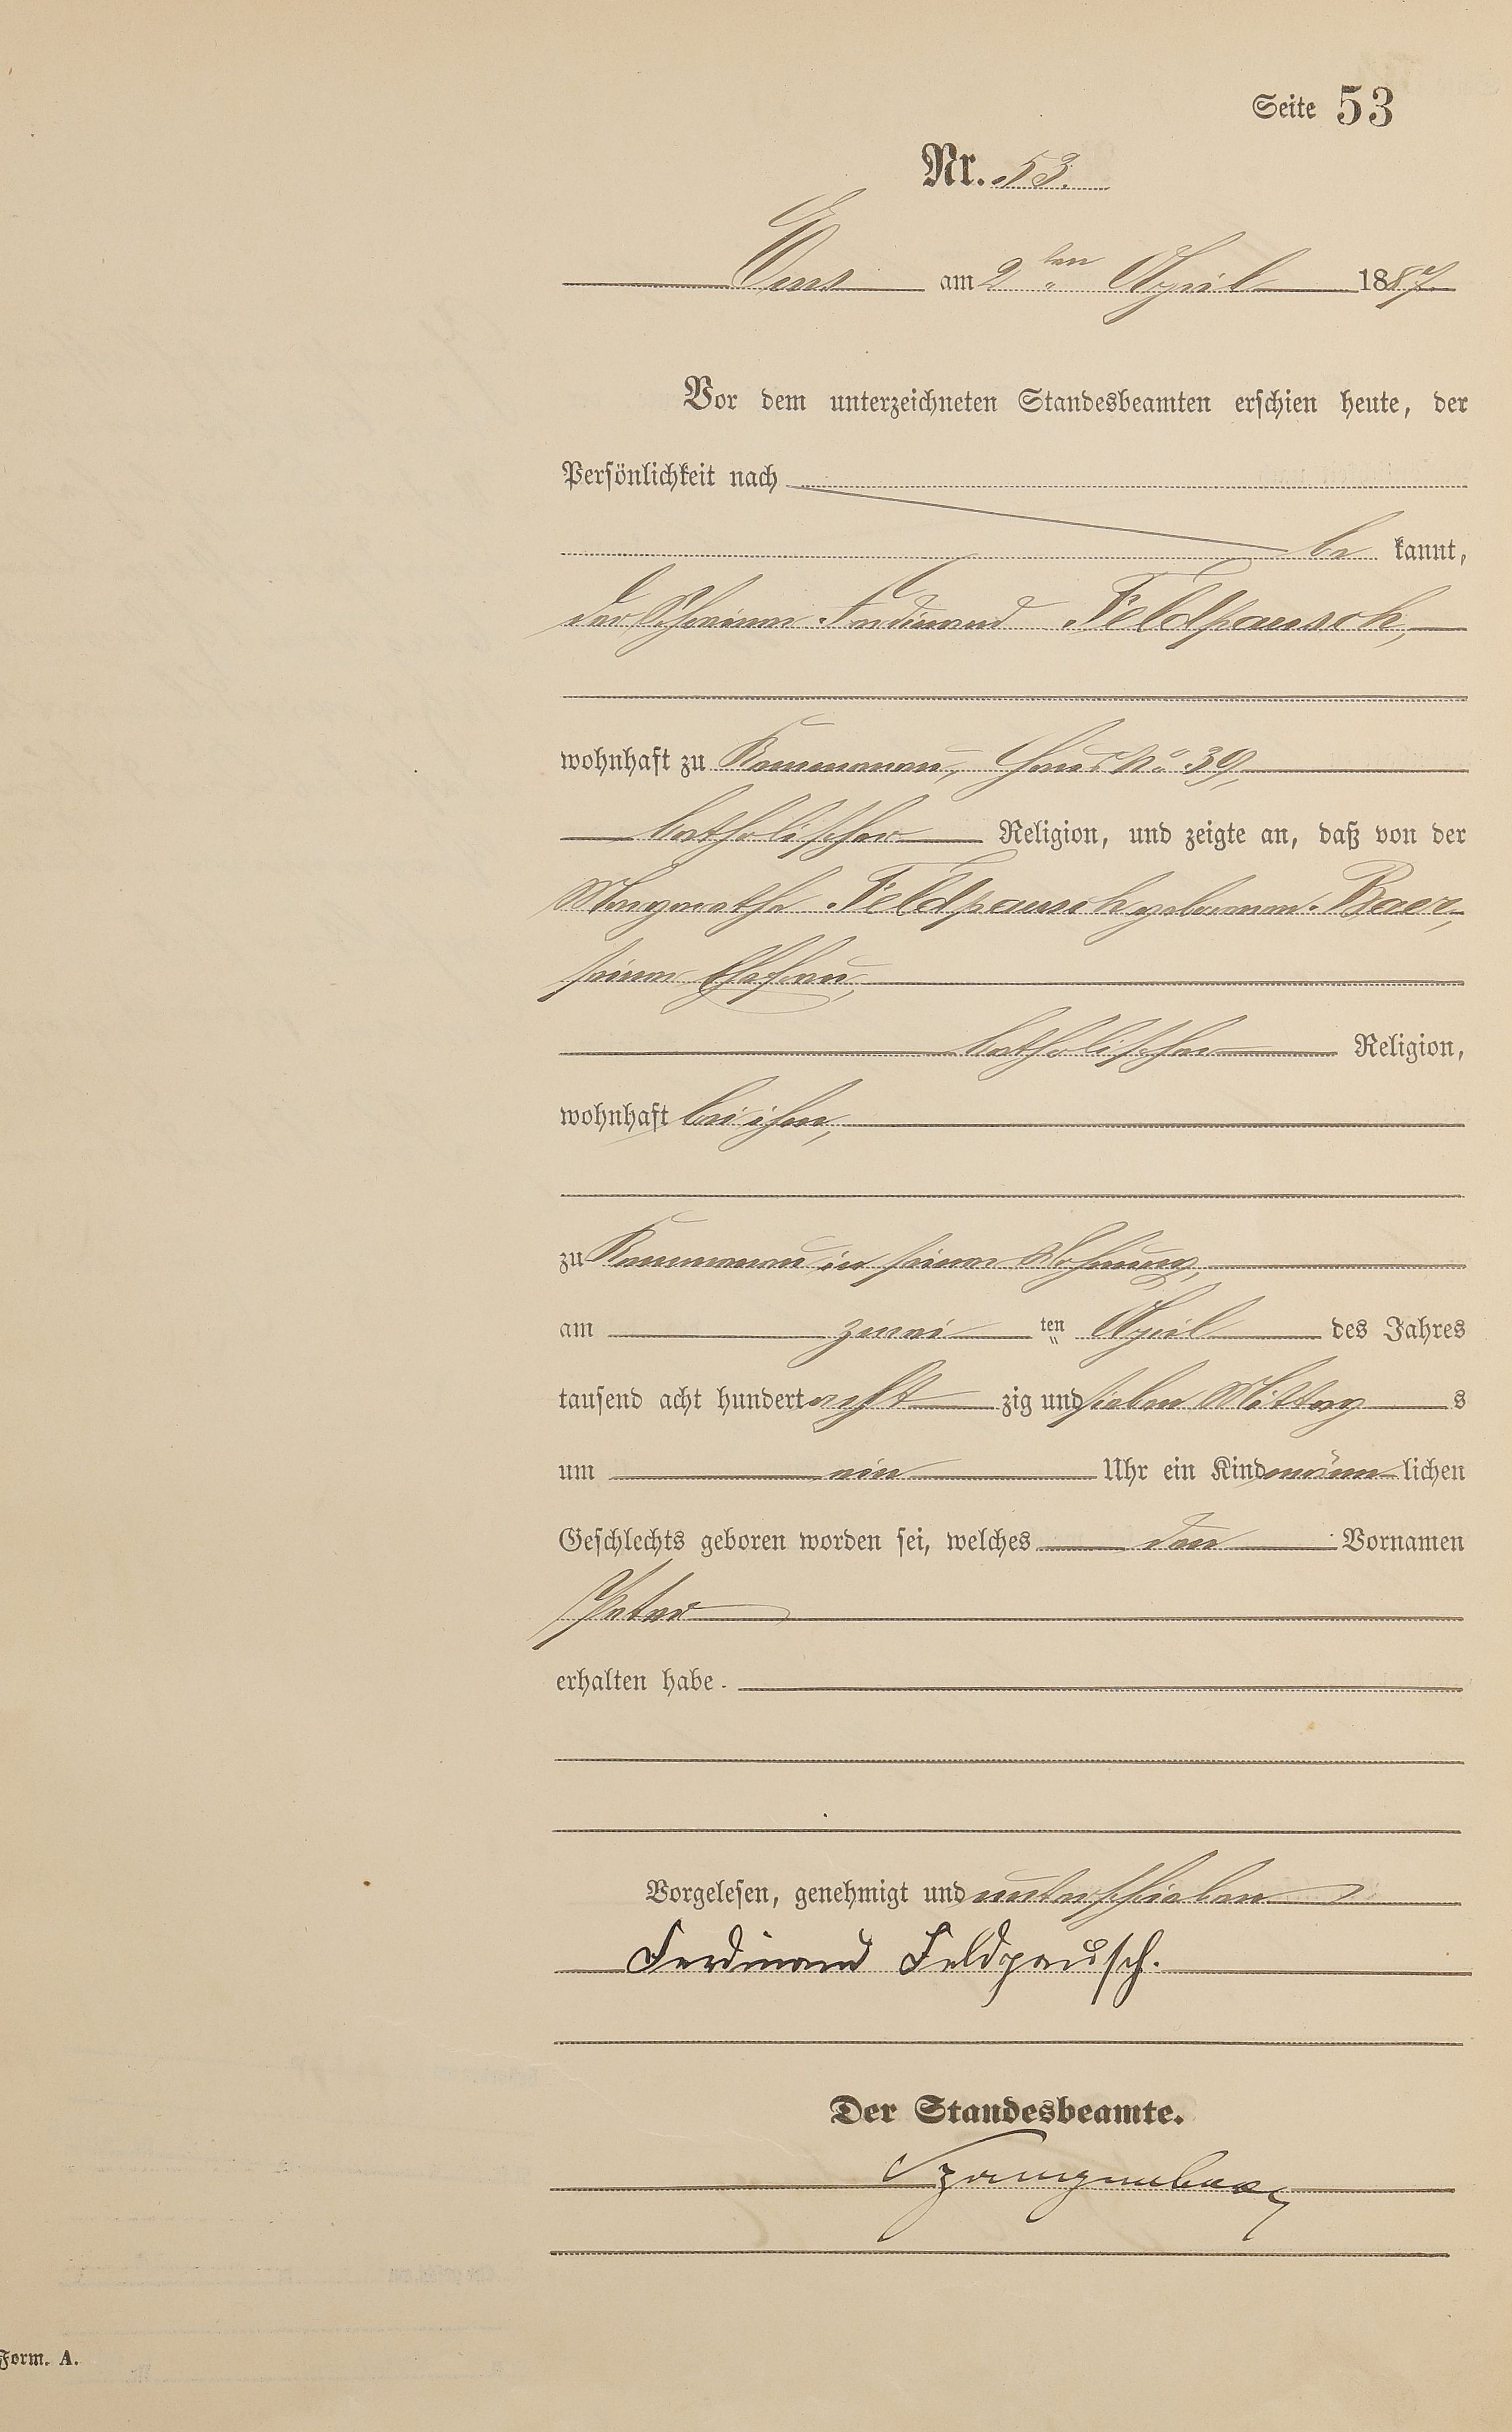 Seite 53
Nr. 53.
Ems am 2ten April 1887.
Vor dem unterzeichneten Standesbeamten erschien heute, der
Persönlichkeit nach
be kannt,
der Schreiner Ferdinand Feldpausch,
wohnhaft zu Kemmenau, Haus No 39,
katholischer Religion, und zeigte an, daß von der
Margarethe Feldpausch geborenen Baer,
seiner Ehefrau,
katholischer Religion,
wohnhaft bei ihm,
zu Kemmenau in seiner Wohnung,
am zwei ten April des Jahres
tausend acht hundert acht zig und sieben Mittag s
um ein Uhr ein Kind männ lichen
Geschlechts geboren worden sei, welches den Vornamen
Peter
erhalten habe.
Vorgelesen, genehmigt und unterschrieben
Ferdinand Feldpausch.
Der Standesbeamte.
Form. A.